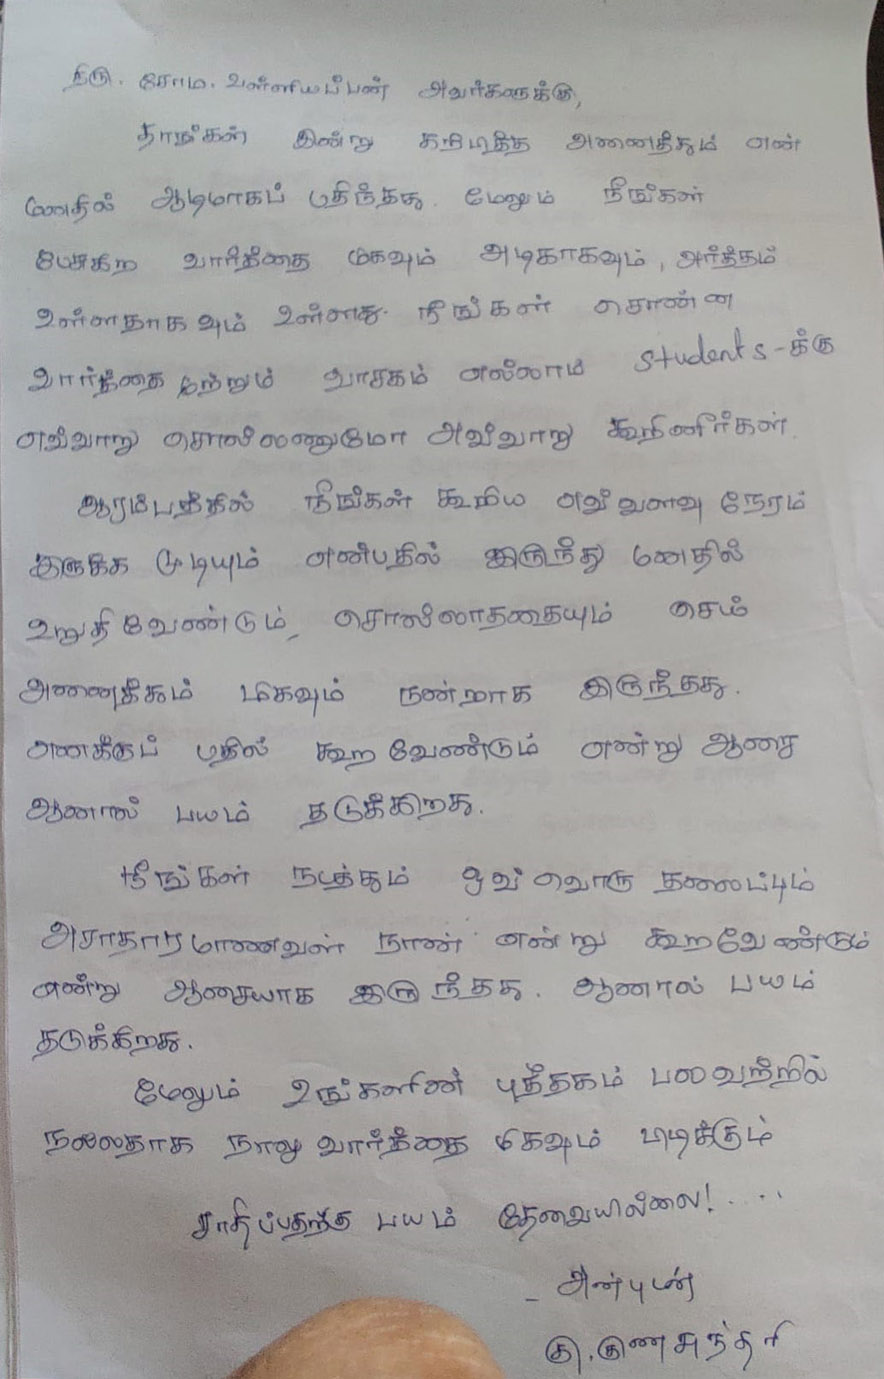 திரு. சோம. வள்ளியப்பன் அவர்களுக்கு,
தாங்கள் இன்று கற்பித்த அனைத்தும் என்
மனதில் ஆழமாகப் பதிந்தது. மேலும் நீங்கள்
பேசுகிற வார்த்தை மிகவும் அழகாகவும், அர்த்தம்
உள்ளதாகவும் உள்ளது. நீங்கள் சொன்ன
வார்த்தை மற்றும் வாசகம் எல்லாம் students-க்கு
எவ்வாறு சொல்லணுமோ அவ்வாறு கூறினீர்கள்.
ஆரம்பத்தில் நீங்கள் கூறிய எவ்வளவு நேரம்
இருக்க முடியும் என்பதில் இருந்து மனதில்
உறுதி வேண்டும், சொல்லாததையும் செய்
அனைத்தும் மிகவும் நன்றாக இருந்தது.
எனக்குப் பதில் கூற வேண்டும் என்று ஆசை
ஆனால் பயம் தடுக்கிறது.
நீங்கள் நடத்தும் ஒவ்வொரு தலைப்பும்
அசாதாரமானவள் நான் என்று கூறவேண்டும்
என்று ஆசையாக இருந்தது. ஆனால் பயம்
தடுக்கிறது.
மேலும் உங்களின் புத்தகம் பலவற்றில்
நல்லதாக நாலு வார்த்தை மிகவும் பிடிக்கும்
சாதிப்பதற்கு பயம் தேவையில்லை!....
- அன்புடன்
கு. குணசுந்தரி